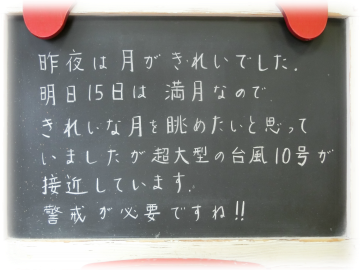 昨夜は月がきれいでした.
明日15日は 満月なので
きれいな月を眺めたいと思って
いましたが超大型の台風10号が
接近しています.
警戒が必要ですね!!